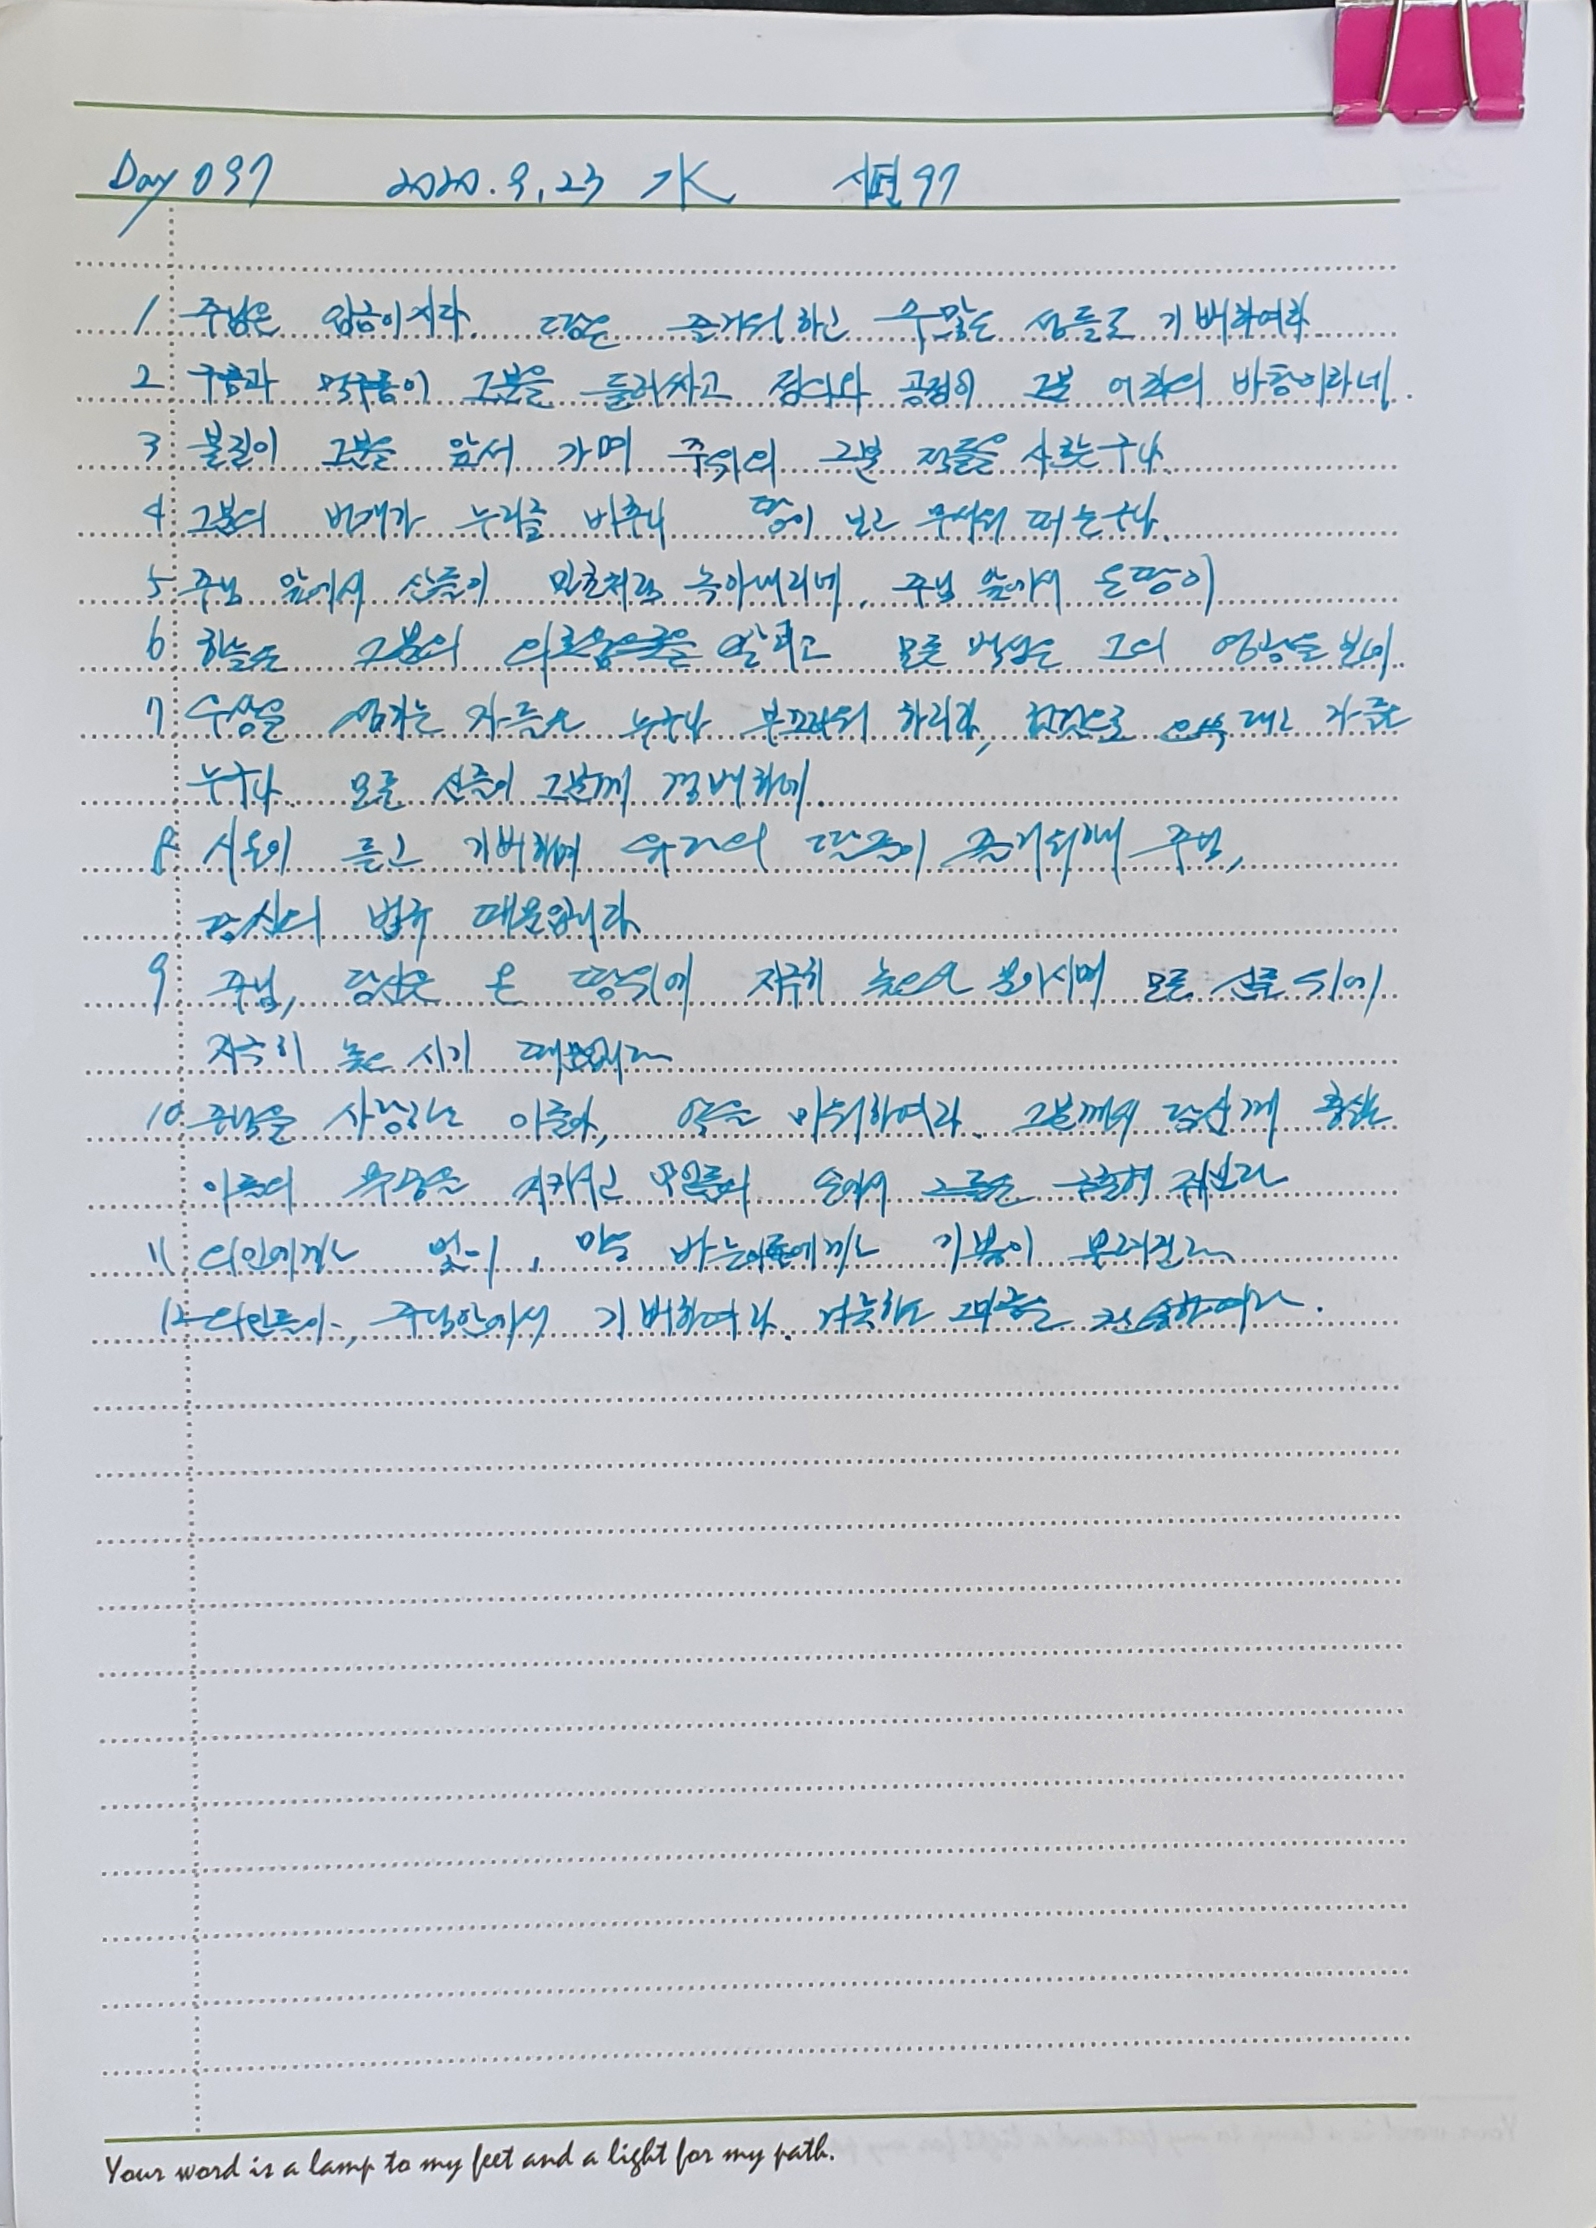 Day 097 2020.9.23 水 시편 97
1 주님은 임금이시다. 땅은 즐거워하고 수많은 섬들도 기뻐하여라
2 구름과 먹구름이 그분을 둘러싸고 정의와 공정이 그분 어좌의 바탕이라네.
3 불길이 그분을 앞서 가며 주위의 그분 적들을 사르는구나.
4 그분의 번개가 누리를 비추니 땅이 보고 무서워 떠는구나.
5 주님 앞에서 산들이 밀초처럼 녹아내리네, 주님 앞에서 온 땅이
6 하늘은 그분의 의로움을 알리고 모든 백성은 그의 영광을 보네.
7 우상을 섬기는 자들은 누구나 부끄러워 하리라, 헛것으로 으스대는 자들은
누구나. 모든 신들이 그분께 경배하네.
8 시온이 듣고 기뻐하며 유다의 딸들이 즐거워하니 주님,
당신의 법규 때문입니다.
9 주님, 당신은 온 땅위에 지극히 높으신 분이시며 모든 신들 위에
지극히 높으시기 때문입니다
10 주님을 사랑하는 이들아, 악을 미워하여라. 그분께서 당신께 충실한
이들의 목숨을 지키시고 악인들의 손에서 그들을 구출해 주신다
11 의인에게는 빛이, 마음 바른이들에게는 기쁨이 뿌려진다.
12 의인들아, 주님안에서 기뻐하여라. 거룩하신 그 이름을 찬송하여라.
Your word is a lamp to my feet and a light for my path.